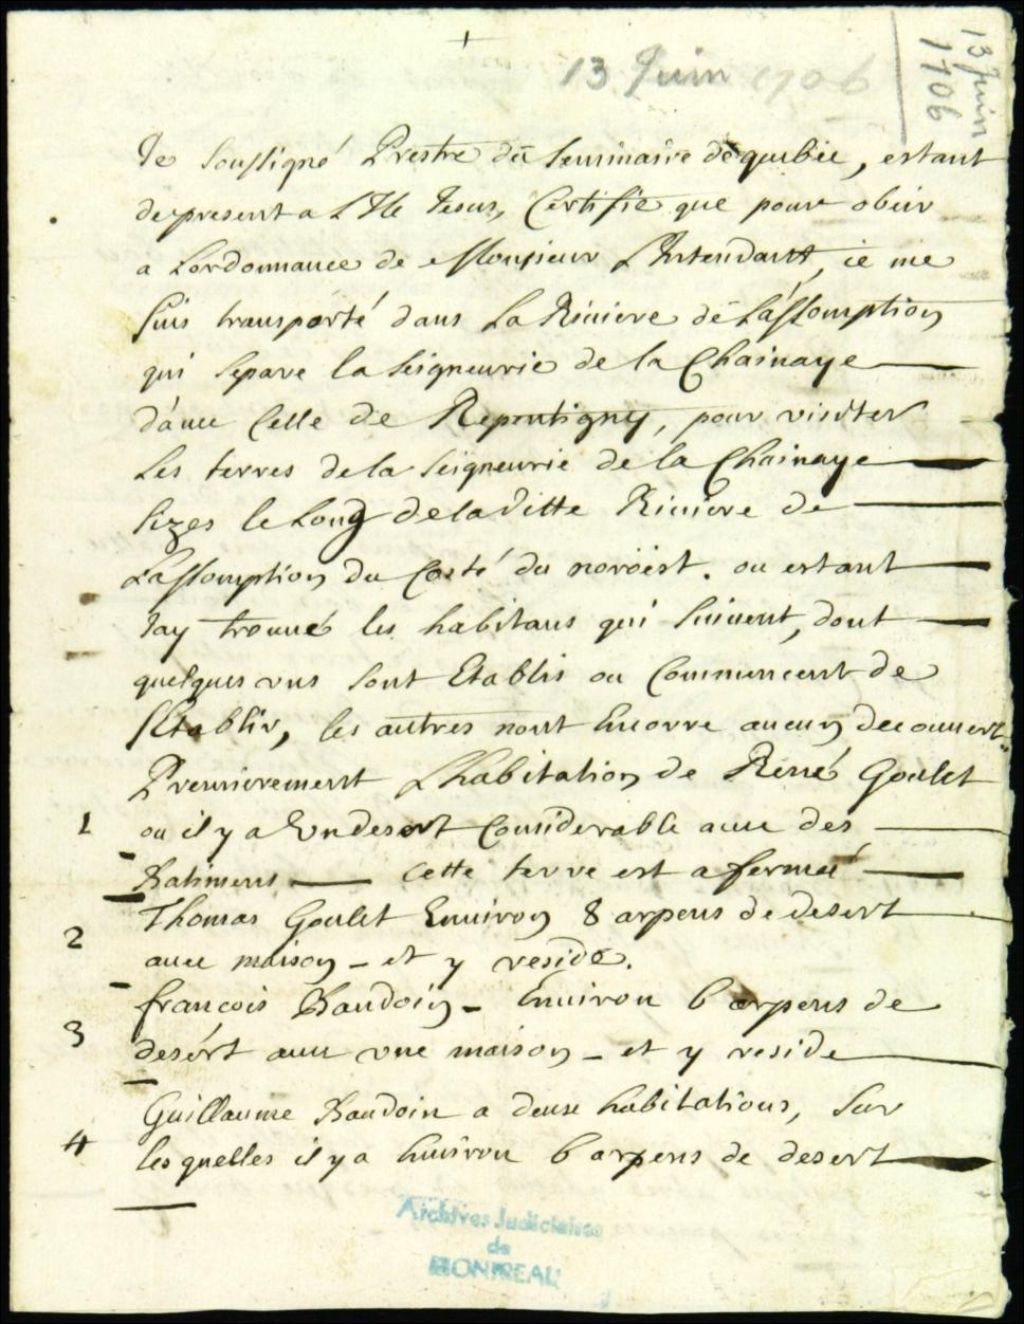 13 Juin 1706
13 Juin
1706
Je Soussigné Prestre du Seminaire de quebec, estant
de present a L'Isle Jesus, Certifie que pour obeir
a Lordonnance de Monsieur L'Intendant, ie me
suis transporté dans La Riuiere de L'assomption
qui separe la seigneurie de la Chainaye
d'auec Celle de Repentigny, pour visiter
Les terres de la Seigneurie de la Chainaye
sizes le Long de la ditte Riuiere de
L'assomption du Costé du noroest. ou estant
Jay trouué les habitans qui suiuent, dont
quelques vns sont Etablis ou Commencent de
s'Etablir, les autres nont Encorre aucun decouuert.
Premierement L'habitation de René Goulet
1 ou il y a Vn desert Considerable auec des
Batimens — Cette terre est afermeé
2 Thomas Goulet Enuiron 8 arpens de desert
auec maison - et y reside.
3 francois Baudoin - Enuiron 6 arpens de
desért auec vne maison - et y reside
4 Guillaume Baudoin a deux habitations, sur
les quelles il y a Enuiron 6 arpens de desert
Archives Judiciaires
de
MONTREAL